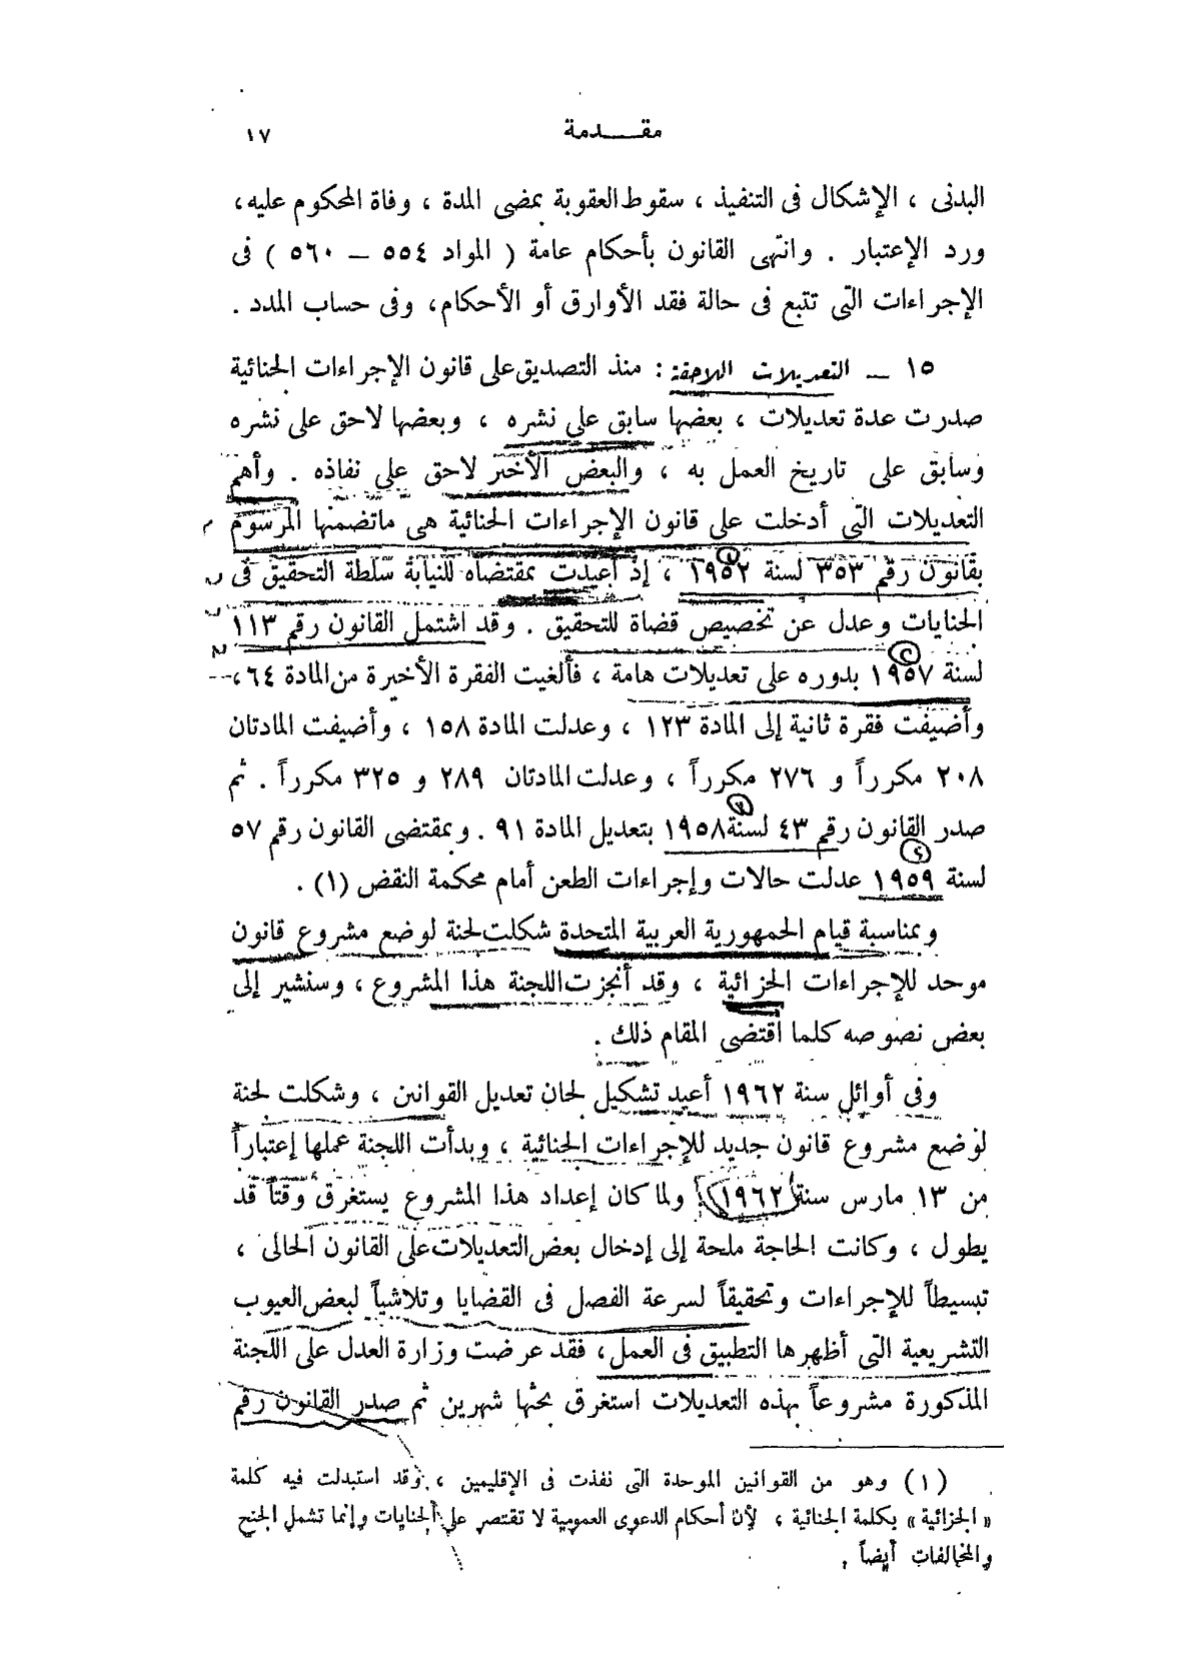 مقدمة ١٧
البدنى ، الإشكال فى التنفيذ ، سقوط العقوبة بمضى المدة ، وفاة المحكوم عليه،
ورد الإعتبار . وانتهى القانون بأحكام عامة ( المواد ٥٥٤ – ٥٦٠ ) فى
الإجراءات التى تتبع فى حالة فقد الأوارق أو الأحكام، وفى حساب المدد .
١٥ – التعديلات اللاحقة : منذ التصديق على قانون الإجراءات الجنائية
صدرت عدة تعديلات ، بعضها سابق على نشره ، وبعضها لاحق على نشره
وسابق على تاريخ العمل به ، والبعض الأخير لاحق على نفاذه . وأهم
التعديلات التى أدخلت على قانون الإجراءات الجنائية هى ماتضمنها المرسوم
بقانون رقم ٣٥٣ لسنة ١٩٥٢ ، إذ أعيدت بمقتضاه للنيابة سلطة التحقيق فى
الجنايات وعدل عن تخصيص قضاة للتحقيق . وقد اشتمل القانون رقم ١١٣
لسنة ١٩٥٧ بدوره على تعديلات هامة ، فألغيت الفقرة الأخيرة من المادة ٦٤ ،
وأضيفت فقرة ثانية إلى المادة ١٢٣ ، وعدلت المادة ١٥٨ ، وأضيفت المادتان
٢٠٨ مكرراً و ٢٧٦ مكرراً ، وعدلت المادتان ٢٨٩ و ٣٢٥ مكرراً . ثم
صدر القانون رقم ٤٣ لسنة ١٩٥٨ بتعديل المادة ٩١ . وبمقتضى القانون رقم ٥٧
لسنة ١٩٥٩ عدلت حالات وإجراءات الطعن أمام محكمة النقض (١) .
وبمناسبة قيام الجمهورية العربية المتحدة شكلت لجنة لوضع مشروع قانون
موحد للإجراءات الجزائية ، وقد أنجزت اللجنة هذا المشروع ، وسنشير إلى
بعض نصوصه كلما اقتضى المقام ذلك .
وفى أوائل سنة ١٩٦٢ أعيد تشكيل لجان تعديل القوانين ، وشكلت لجنة
لوضع مشروع قانون جديد للإجراءات الجنائية ، وبدأت اللجنة عملها إعتباراً
من ١٣ مارس سنة ١٩٦٢ ولما كان إعداد هذا المشروع يستغرق وقتاً قد
يطول ، وكانت الحاجة ملحة إلى إدخال بعض التعديلات على القانون الحالى ،
تبسيطاً للإجراءات وتحقيقاً لسرعة الفصل فى القضايا وتلاشياً لبعض العيوب
التشريعية التى أظهرها التطبيق فى العمل، فقد عرضت وزارة العدل على اللجنة
المذكورة مشروعاً بهذه التعديلات استغرق بحثها شهرين ثم صدر القانون رقم
(١) وهو من القوانين الموحدة التى نفذت فى الإقليمين ، وقد استبدلت فيه كلمة
« الجزائية » بكلمة الجنائية ، لأن أحكام الدعوى العمومية لا تقتصر على الجنايات وإنما تشمل الجنح
والمخالفات أيضاً .